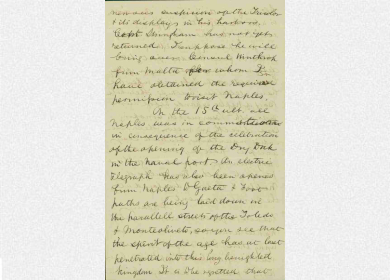 suspicion of the Tricolor
& its display in his harbour.
Capt Ingraham has not yet
returned. I suppose he will
bring over Consul Winthrop
from Malta for whom I
have obtained the required
permission to visit Naples.
On the 15th ult. all
Naples was in commotion
in consequence of the celebration
of the opening of the Dry Dock
in the naval port. An electric
Telegraph has also been opened
from Naples to Gaeta & foot
paths are being laid down in
the parallel streets of the Toledo
& Monteoliveto, so you see that
the spirit of the age has at last
penetrated into this long benighted
Kingdom. It is the that